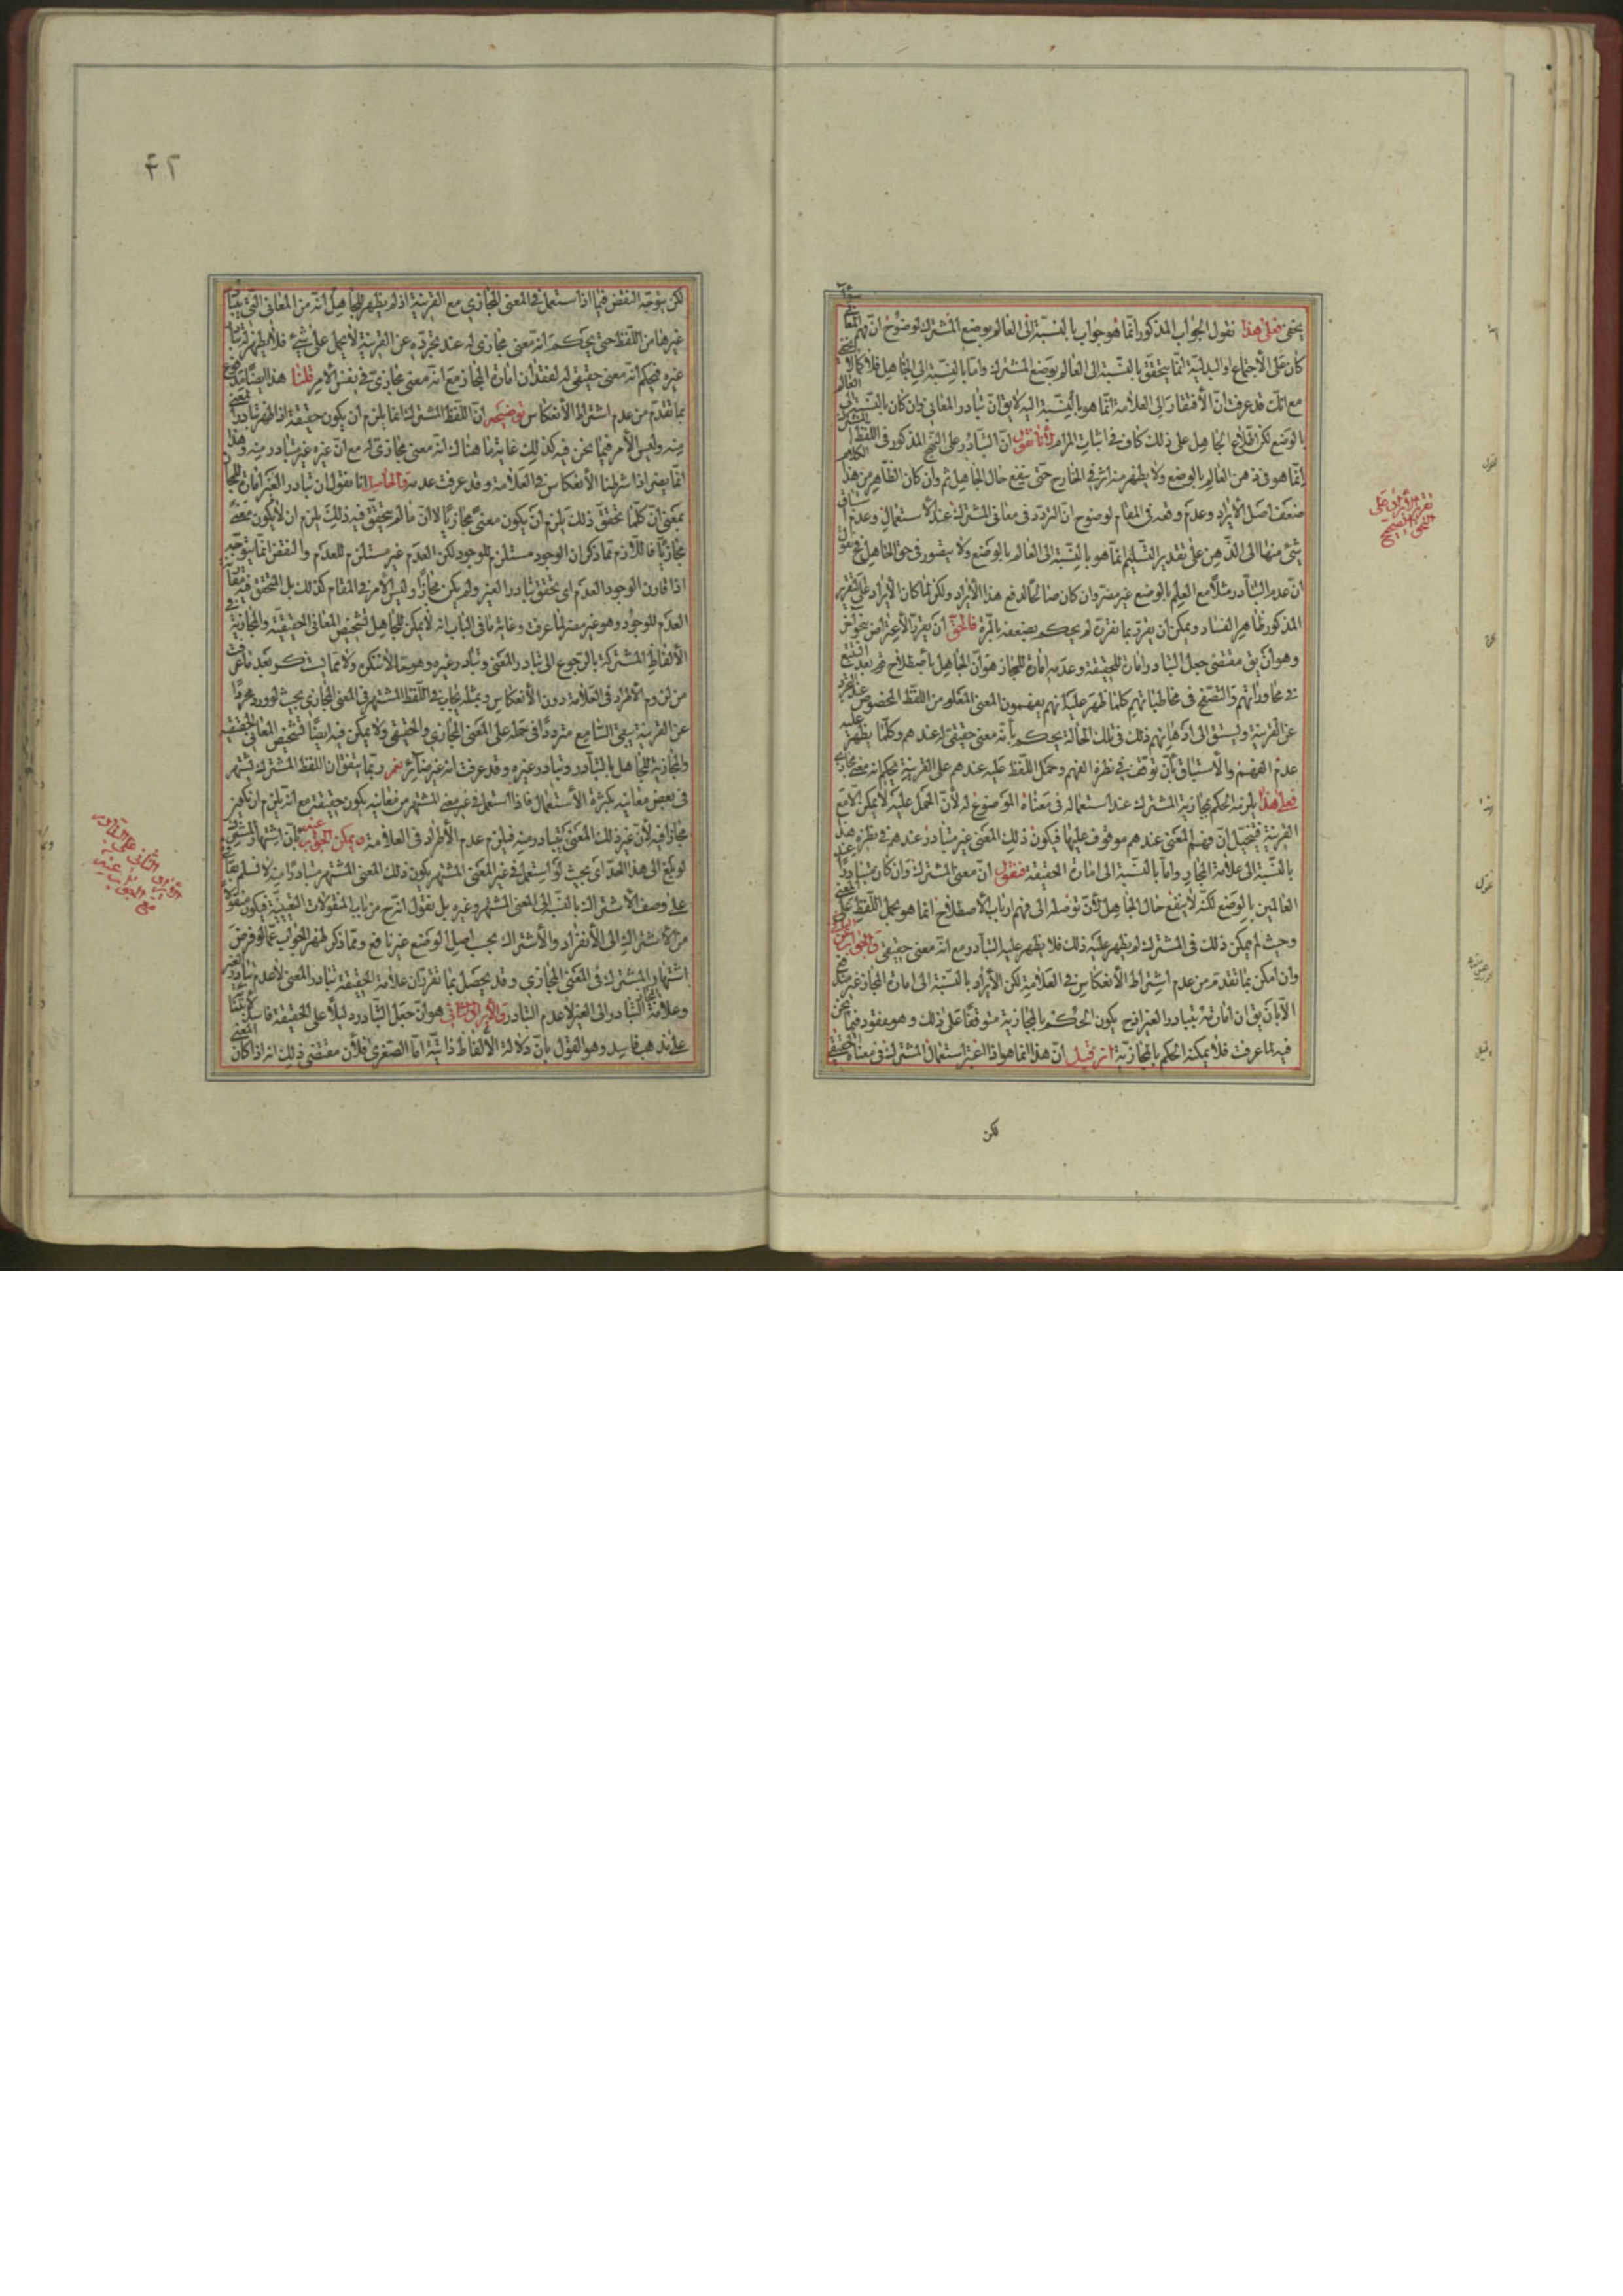 يخفى فعلى هذا نقول الجواب المذكور انما هو جواب بالنسبة الى العالم بوضع المشترك لوضوح ان فهم المعانى
كان على الاجتماع او البدلية انما يتحقق بالنسبة الى العالم بوضع المشترك واما بالنسبة الى الجاهل فلا كمالا
مع انك قد عرفت ان الافتقار الى العلامة انما هو بالنسبة اليه لا يق ان تبادر المعانى وان كان بالنسبة الى العالم
بالوضع لكن اطلاع الجاهل على ذلك كاف فى اثبات المرام لانا نقول ان التبادر على النهج المذكور فى اللفظ المشترك
انما هو فى ذهن العالم بالوضع ولا يظهر منه اثر فى الخارج حتى ينفع حال الجاهل ثم وان كان الظاهر من هذا الكلام
ضعف اصل الايراد وعدم وقعه فى المقام لوضوح ان التردد فى معانى المشترك عند الاستعمال وعدم
شئ منها الى الذهن على تقدير التسليم انما هو بالنسبة الى العالم بالوضع ولا يتصور فى حق الجاهل
ان عدم التبادر مثلا مع العلم بالوضع غير مضر وان كان صالحا لدفع هذا الايراد ولكن لما كان الايراد على التقرير
المذكور ظاهر الفساد ويمكن ان يقرر بما نقرره لم يحكم بضعفه بالمرة فالحق ان يقرر الاعتراض بنحو اخر
وهو ان يق مقتضى جعل التبادر امارة للحقيقة وعدمه امارة للمجاز هو ان الجاهل باصطلاح قوم بعد التتبع
فى محاوراتهم والتصفح فى مخاطباتهم كلما ظهر عليه انهم يفهمون المعنى المعلوم من اللفظ المخصوص عند التجرد
عن القرينة ويستبق الى اذهانهم ذلك فى تلك الحالة يحكم بانه معنى حقيقى له عندهم وكلما يظهر عليه
عدم الفهم والاستباق بان توقف فى نظره الفهم وحمل اللفظ عليه عندهم على القرينة يحكم انه معنى مجازى
فعلى هذا يلزمه الحكم بمجازية المشترك عند استعماله فى معناه الموضوع له لان الحمل عليه لا يمكن الا مع
القرينة فيتخيل ان فهم المعنى عندهم موقوف عليها فيكون ذلك المعنى غير متبادر عندهم فى نظره هذا
بالنسبة الى علامة المجاز واما بالنسبة الى امارة الحقيقة فنقول ان معنى المشترك وان كان متبادرا عند
العالمين بالوضع لكنه لا ينفع حال الجاهل لان توصله الى فهم ارباب الاصطلاح انما هو بحمل اللفظ على المعنى
وحيث لم يمكن ذلك فى المشترك لم يظهر عليه ذلك فلا يظهر عليه التبادر مع انه معنى حقيقى والجواب عن هذا
وان امكن بما تقدم من عدم اشتراط الانعكاس فى العلامة لكن الايراد بالنسبة الى امارة المجاز غير مندفع
الا بان يق ان امارته تبادر الغير اذ ح يكون الحكم بالمجازية متوقفا على ذلك وهو مفقود فيما نحن
فيه لما عرفت فلا يمكنه الحكم بالمجازية ان قيل ان هذا انما هو اذا اعتبر استعمال المشترك فى معناه الحقيقى
لكن
تقرير الايراد على
النحو الصحيح
۴۲
لكن يتوجه النقض فيما اذا استعمل فى المعنى المجازى مع القرينة اذ لم يظهر للجاهل انه من المعانى التى يتبادر
غيرها من اللفظ حتى يحكم انه معنى مجازى له عند تجرده عن القرينة لا يحمل على شئ فلا يظهر له تبادر
غيره فيحكم انه معنى حقيقى له لفقدان امارة المجاز مع انه معنى مجازى فى نفس الامر قلنا هذا ايضا مدفوع
بما تقدم من عدم اشتراط الانعكاس توضيحه ان اللفظ المشترك انما يلزم ان يكون حقيقة اذا ظهر تبادر المعنى
منه وليس الامر فيما نحن فيه كذلك غاية ما هناك انه معنى مجازى له مع ان غيره غير متبادر منه وهذا
انما يضر اذا شرطنا الانعكاس فى العلامة وقد عرفت عدمه والحاصل انا نقول ان تبادر الغير امارة المجاز
بمعنى ان كلما تحقق ذلك يلزم ان يكون معنى مجازيا لا ان ما لم يتحقق فيه ذلك يلزم ان لا يكون معنى
مجازيا فاللازم مما ذكر ان الوجود مستلزم للوجود لكن العدم غير مستلزم للعدم والنقض انما يتوجه
اذا قارن الوجود العدم اى يتحقق تبادر الغير ولم يكن مجازا وليس الامر فى المقام كذلك بل المتحقق فيه مقارنة
العدم للوجود وهو غير مضر لما عرفت وغاية ما فى الباب انه لا يمكن للجاهل تشخيص المعانى الحقيقية والمجازية فى
الالفاظ المشتركة بالرجوع الى تبادر المعنى وتبادر غيره وهو مما لا ننكره ولا مما يستنكر بعد ما عرفت
من لزوم الاطراد فى العلامة دون الانعكاس وبمثله يجاب فى اللفظ المشتهر فى المعنى المجازى بحيث لو ورد مجردا
عن القرينة يبقى السامع مترددا فى حمله على المعنى المجازى والحقيقى ولا يمكن فيه ايضا تشخيص المعانى الحقيقية
والمجازية للجاهل بالتبادر وتبادر غيره وقد عرفت انه غير ضائر نعم ربما يتفق ان اللفظ المشترك يشتهر
فى بعض معانيه بكثرة الاستعمال فاذا استعمل فى غير معنى المشتهر من معانيه يكون حقيقة مع انه يلزم ان يكون
مجازا فيه لان غير ذلك المعنى يتبادر منه فيلزم عدم الاطراد فى العلامة ويمكن الجواب عنه بان اشتهار المشترك
لو بلغ الى هذا الحد اى بحيث لو استعمل فى غير المعنى المشتهر يكون ذلك المعنى المشتهر متبادرا منه لا نسلم بقائه
على وصف الاشتراك بالنسبة الى المعنى المشتهر وغيره بل نقول انه ح من باب المنقولات التعينية فيكون منقولا
من الاشتراك الى الانفراد والاشتراك بحسب اصل الوضع غير نافع ومما ذكر ظهر الجواب عما لو فرض
اشتهار المشترك فى المعنى المجازى وقد يحصل بما تقرر ان علامة الحقيقة تبادر المعنى لا عدم تبادر الغير
وعلامة المجاز التبادر الى الغير لا عدم التبادر والايراد الثانى هو ان جعل التبادر دليلا على الحقيقة فاسد لابتنائه
على مذهب فاسد وهو القول بان دلالة الالفاظ ذاتية اما الصغرى فلان مقتضى ذلك انه اذا كان المعنى
الايراد الثانى على التبادر
مع الجواب عنه